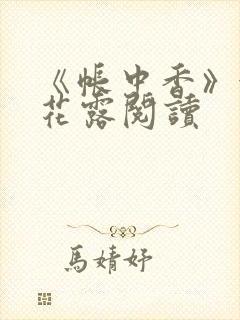 《帳中香》
花露閱讀
馬婧妤